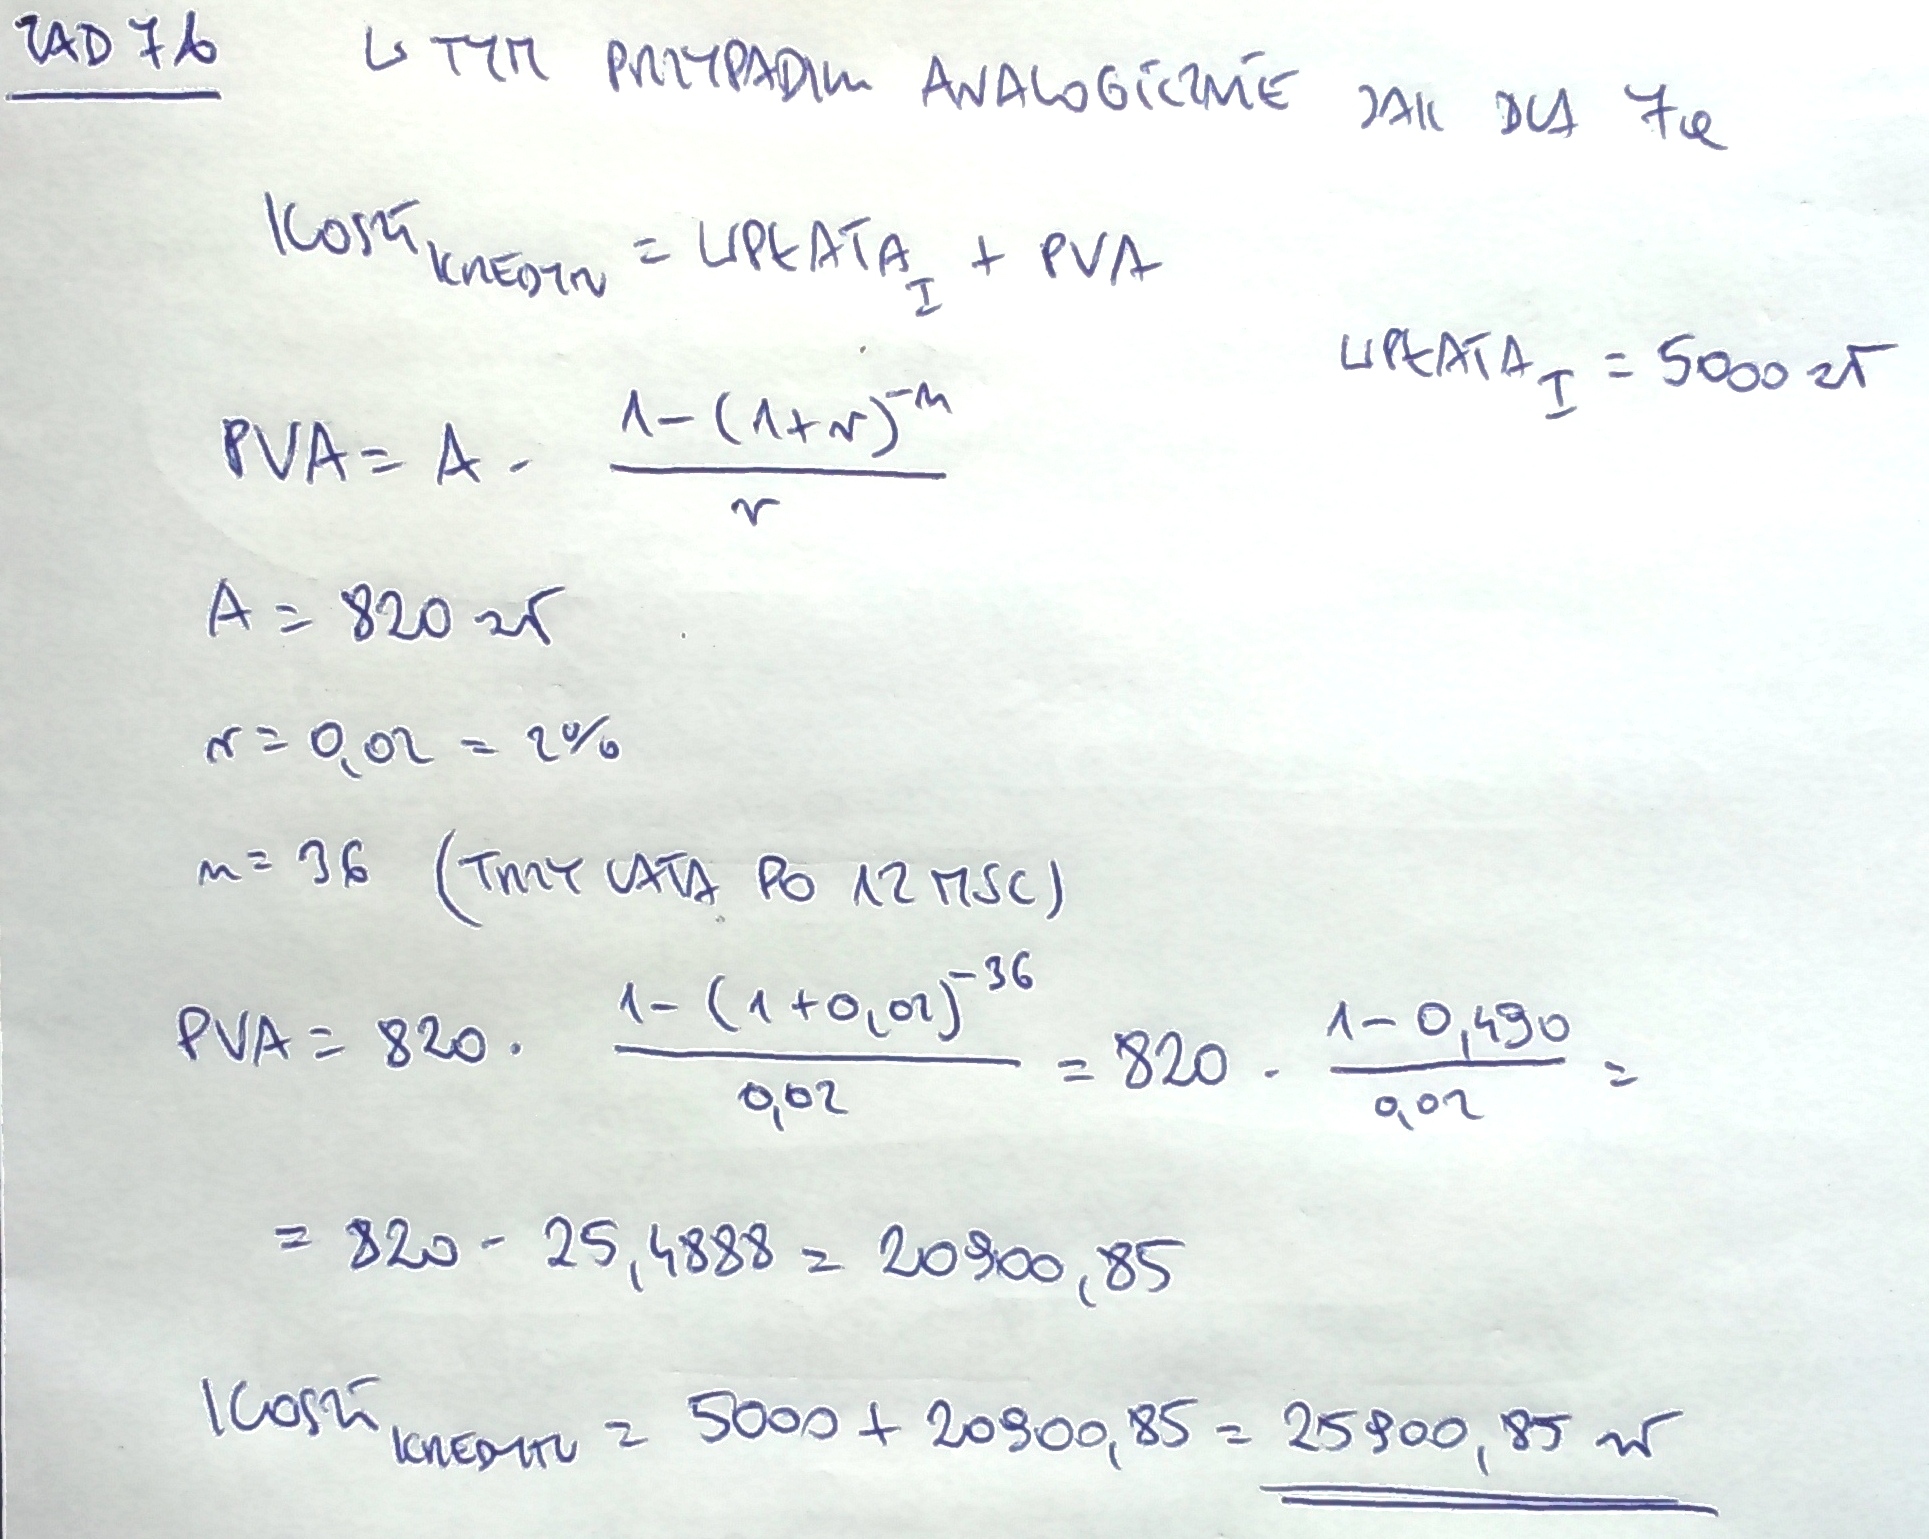 ZAD 7b W TYM PRZYPADKU ANALOGICZNIE JAK DLA 7a
KOSZT KREDYTU = WPŁATA I + PVA
WPŁATA I = 5000 zł
PVA = A · (1-(1+r)^-n)/r
A = 820 zł
r = 0,02 = 2%
n = 36 (TRZY LATA PO 12 MSC)
PVA = 820 · (1-(1+0,02)^-36)/0,02 = 820 · (1-0,490)/0,02 =
= 820 · 25,4888 = 20900,85
KOSZT KREDYTU = 5000 + 20900,85 = 25900,85 zł